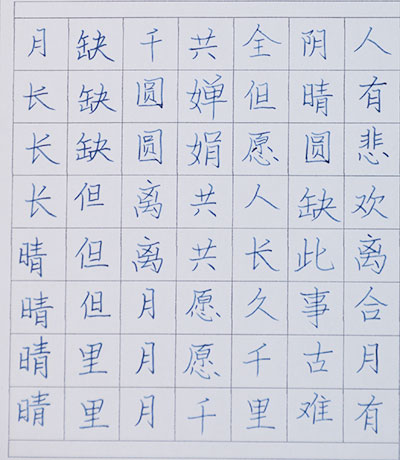 人有悲欢离合月有
阴晴圆缺此事古难
全但愿人长久千里
共婵娟共共愿愿千
千圆圆离离月月月
缺缺缺但但但里里
月长长长晴晴晴晴